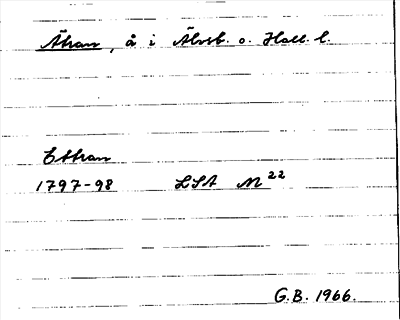 Ätran, å i Älvsb. o. Hall. l.
Ettran
1797-98 LSA M 22
G.B. 1966.